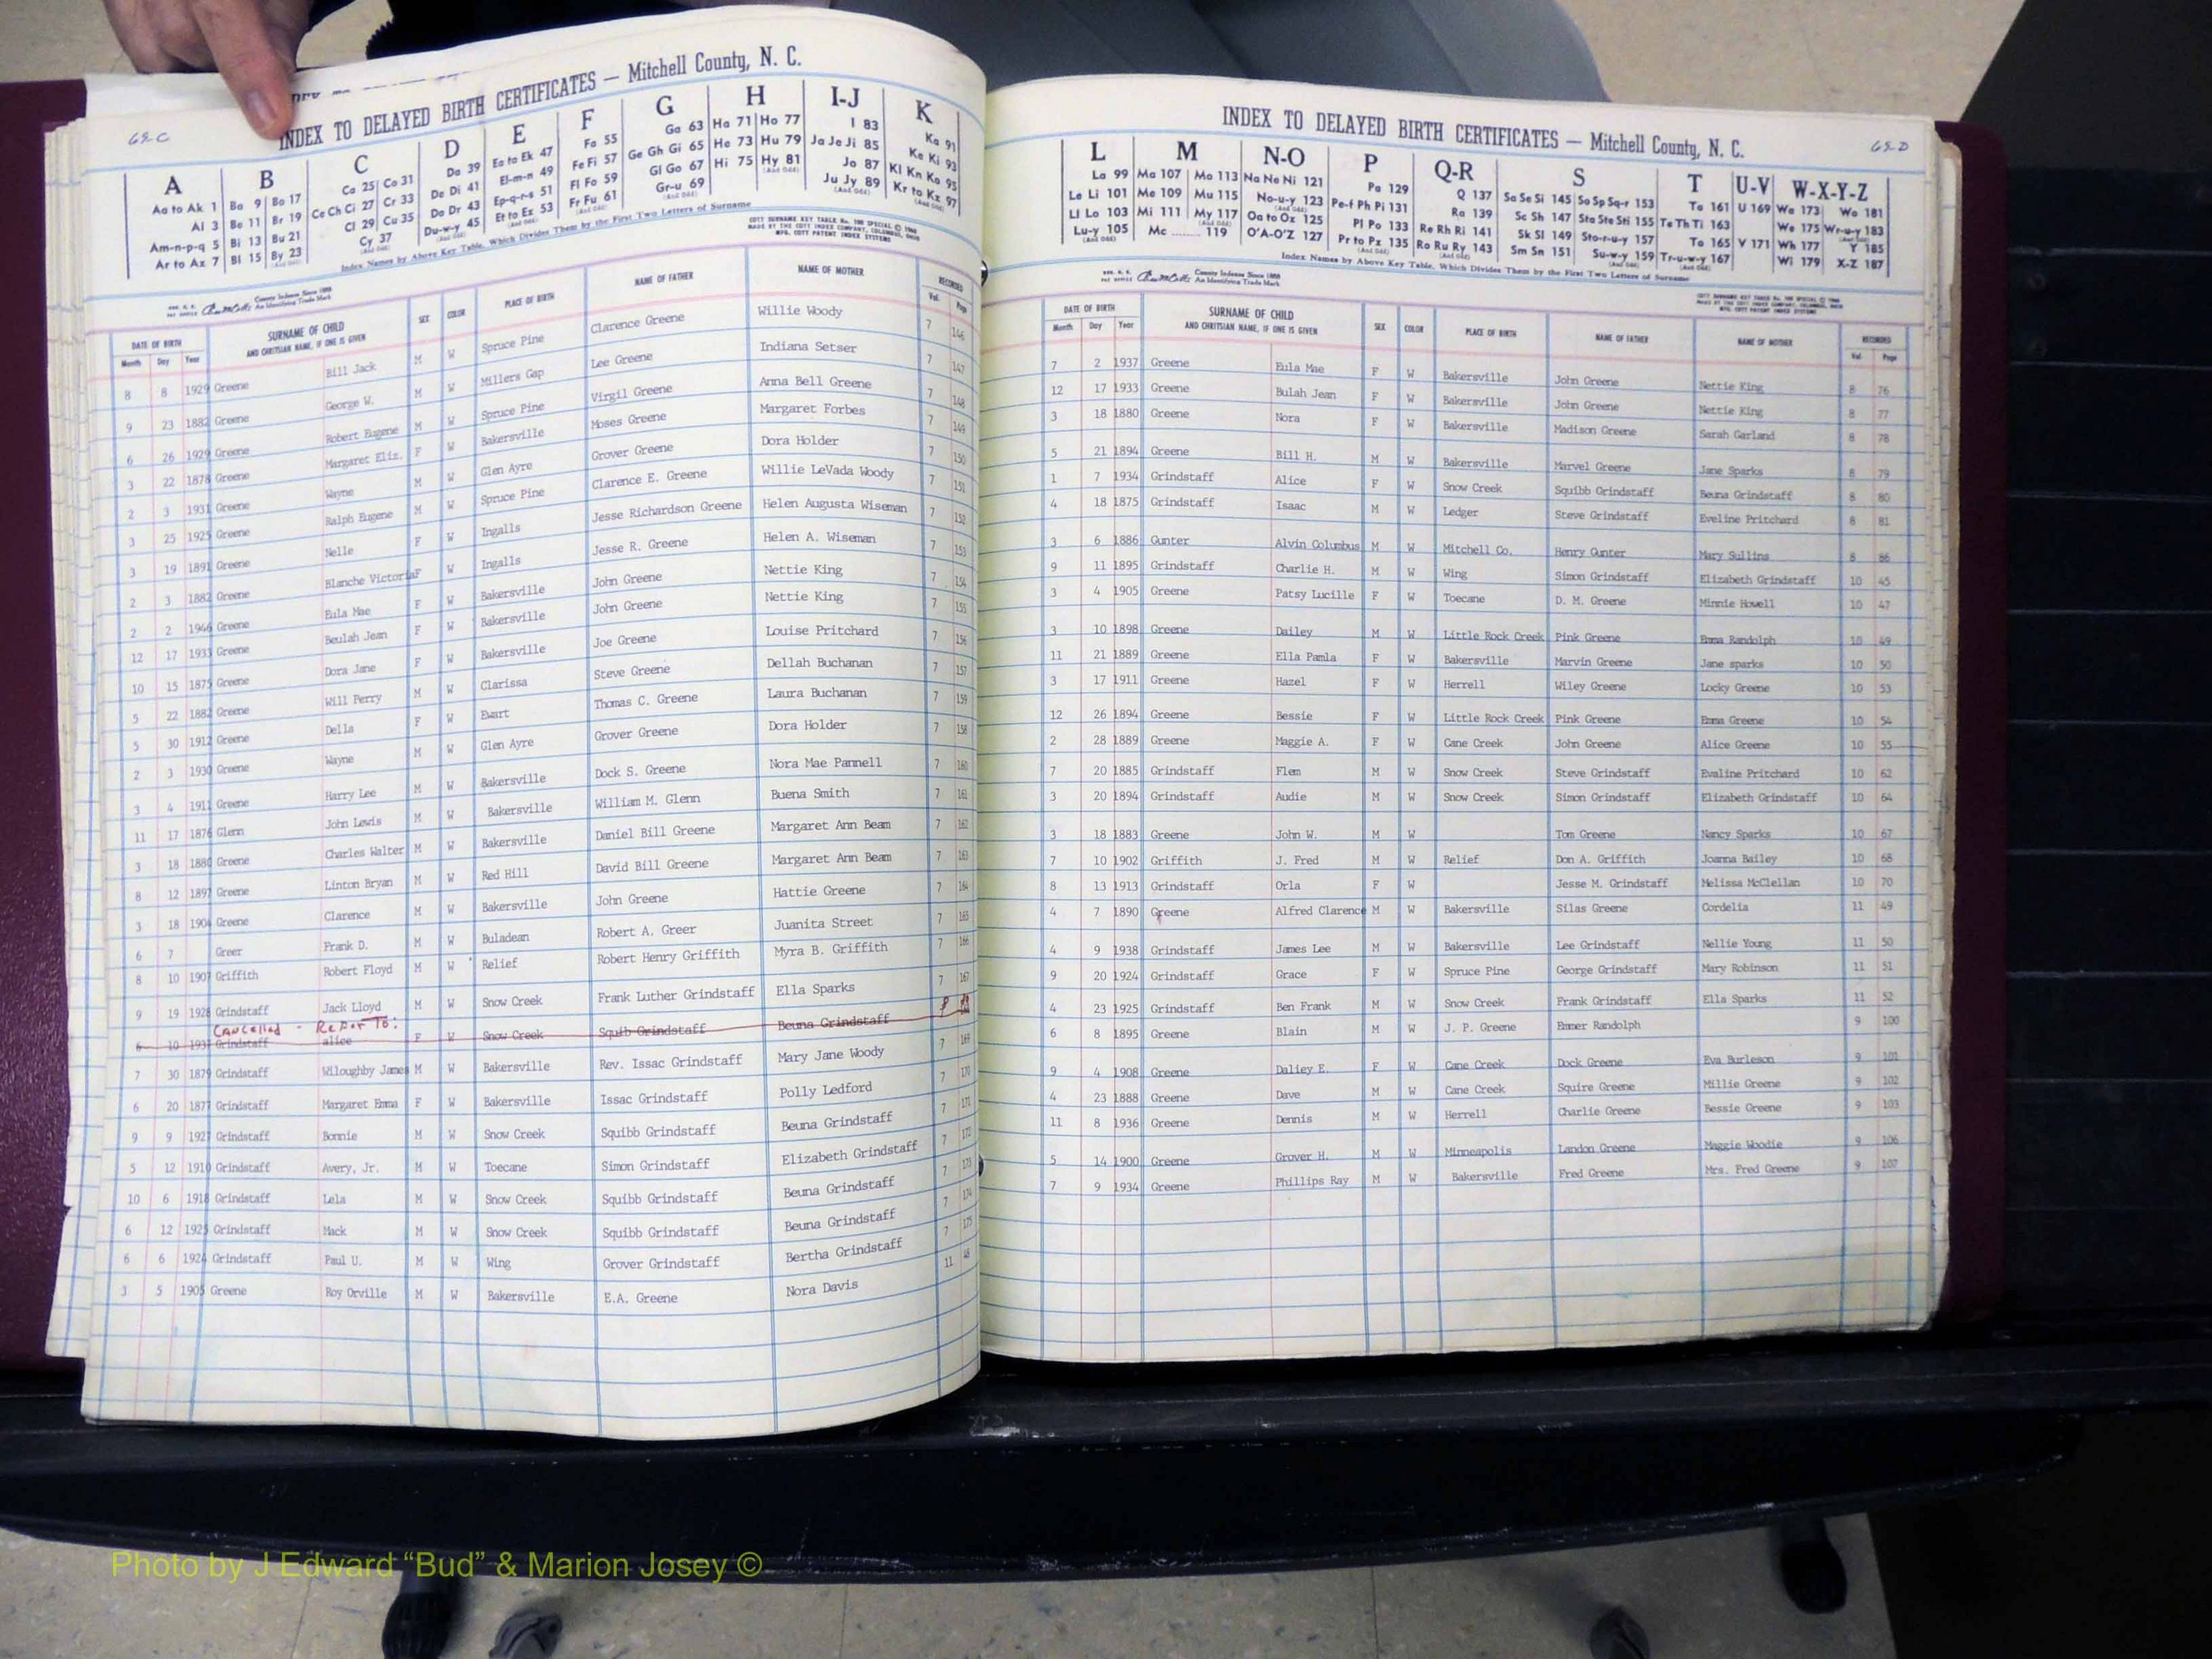 62C
INDEX TO DELAYED BIRTH CERTIFICATES — Mitchell County, N. C.
A B C D E F G H I-J K
Aa to Ak 1 Ba 9 Bo 17 Ca 25 Co 31 Da 39 Ea to Ek 47 Fa 55 Ga 63 Ha 71 Ho 77 I 83 Ka 91
Al 3 Be 11 Br 19 Ce Ch Ci 27 Cr 33 De Di 41 El-m-n 49 Fe Fi 57 Ge Gh Gi 65 He 73 Hu 79 Ja Je Ji 85 Ke Ki 93
Am-n-p-q 5 Bi 13 Bu 21 Cl 29 Cu 35 Do Dr 43 Ep-q-r-s 51 Fl Fo 59 Gl Go 67 Hi 75 Hy 81 Jo 87 Kl Kn Ko 95
Ar to Az 7 Bl 15 By 23 Cy 37 Du-w-y 45 Et to Ez 53 Fr Fu 61 Gr-u 69 Ju Jy 89 Kr to Kz 97
Index Names by Above Key Table, Which Divides Them by the First Two Letters of Surname
County Indexes Since 1888
An Identifying Trade Mark
DATE OF BIRTH SURNAME OF CHILD SEX COLOR PLACE OF BIRTH NAME OF FATHER NAME OF MOTHER RECORDED
Month Day Year AND CHRITSIAN NAME, IF ONE IS GIVEN Vol. Page
8 8 1929 Greene Bill Jack M W Spruce Pine Clarence Greene Willie Woody 7 146
9 23 1882 Greene George W. M W Millers Gap Lee Greene Indiana Setser 7 147
6 26 1929 Greene Robert Eugene M W Spruce Pine Virgil Greene Anna Bell Greene 7 148
3 22 1878 Greene Margaret Eliz. F W Bakersville Moses Greene Margaret Forbes 7 149
2 3 1931 Greene Wayne M W Glen Ayre Grover Greene Dora Holder 7 150
3 25 1925 Greene Ralph Eugene M W Spruce Pine Clarence E. Greene Willie LeVada Woody 7 151
3 19 1891 Greene Nelle F W Ingalls Jesse Richardson Greene Helen Augusta Wiseman 7 152
2 3 1882 Greene Blanche Victoria F W Ingalls Jesse R. Greene Helen A. Wiseman 7 153
2 2 1946 Greene Eula Mae F W Bakersville John Greene Nettie King 7 154
12 17 1933 Greene Beulah Jean F W Bakersville John Greene Nettie King 7 155
10 15 1875 Greene Dora Jane F W Bakersville Joe Greene Louise Pritchard 7 156
5 22 1882 Greene Will Perry M W Clarissa Steve Greene Dellah Buchanan 7 157
5 30 1912 Greene Della F W Ewart Thomas C. Greene Laura Buchanan 7 159
2 3 1930 Greene Wayne M W Glen Ayre Grover Greene Dora Holder 7 158
3 4 1911 Greene Harry Lee M W Bakersville Dock S. Greene Nora Mae Pannell 7 160
11 17 1876 Glenn John Lewis M W Bakersville William M. Glenn Buena Smith 7 161
3 18 1880 Greene Charles Walter M W Bakersville Daniel Bill Greene Margaret Ann Beam 7 162
8 12 1897 Greene Linton Bryan M W Red Hill David Bill Greene Margaret Ann Beam 7 163
3 18 1904 Greene Clarence M W Bakersville John Greene Hattie Greene 7 164
6 7 Greer Frank D. M W Buladean Robert A. Greer Juanita Street 7 165
8 10 1907 Griffith Robert Floyd M W Relief Robert Henry Griffith Myra B. Griffith 7 166
9 19 1928 Grindstaff Jack Lloyd M W Snow Creek Frank Luther Grindstaff Ella Sparks 7 167
CANCElled - RefER TO:
6 10 193 Grindstaff alice F W Snow Creek Squib Grindstaff Beuna Grindstaff
7 30 1879 Grindstaff Wiloughby James M W Bakersville Rev. Issac Grindstaff Mary Jane Woody 7 169
6 20 1877 Grindstaff Margaret Emma F W Bakersville Issac Grindstaff Polly Ledford 7 170
9 9 1927 Grindstaff Bonnie M W Snow Creek Squibb Grindstaff Beuna Grindstaff 7 171
5 12 1910 Grindstaff Avery, Jr. M W Toecane Simon Grindstaff Elizabeth Grindstaff 7 172
10 6 1918 Grindstaff Lela M W Snow Creek Squibb Grindstaff Beuna Grindstaff 7 173
6 12 1925 Grindstaff Mack M W Snow Creek Squibb Grindstaff Beuna Grindstaff 7 174
6 6 1924 Grindstaff Paul U. M W Wing Grover Grindstaff Bertha Grindstaff 7 175
3 5 1905 Greene Roy Orville M W Bakersville E.A. Greene Nora Davis 11 48
62D
INDEX TO DELAYED BIRTH CERTIFICATES — Mitchell County, N. C.
L M N-O P Q-R S T U-V W-X-Y-Z
La 99 Ma 107 Mo 113 Na Ne Ni 121 Pa 129 Q 137 Sa Se Si 145 So Sp Sq-r 153 Ta 161 U 169 Wa 173 Wo 181
Le Li 101 Me 109 Mu 115 No-u-y 123 Pe-f Ph Pi 131 Ra 139 Sc Sh 147 Sta Ste Sti 155 Te Th Ti 163 We 175 Wr-u-y 183
Ll Lo 103 Mi 111 My 117 Oa to Oz 125 Pl Po 133 Re Rh Ri 141 Sk Sl 149 Sto-r-u-y 157 To 165 V 171 Wh 177 Y 185
Lu-y 105 Mc 119 O'A-O'Z 127 Pr to Pz 135 Ro Ru Ry 143 Sm Sn 151 Su-w-y 159 Tr-u-w-y 167 Wi 179 X-Z 187
Index Names by Above Key Table, Which Divides Them by the First Two Letters of Surname
County Indexes Since 1888
An Identifying Trade Mark
DATE OF BIRTH SURNAME OF CHILD SEX COLOR PLACE OF BIRTH NAME OF FATHER NAME OF MOTHER RECORDED
Month Day Year AND CHRITSIAN NAME, IF ONE IS GIVEN Vol. Page
7 2 1937 Greene Eula Mae F W Bakersville John Greene Nettie King 8 76
12 17 1933 Greene Bulah Jean F W Bakersville John Greene Nettie King 8 77
3 18 1880 Greene Nora F W Bakersville Madison Greene Sarah Garland 8 78
5 21 1894 Greene Bill H. M W Bakersville Marvel Greene Jane Sparks 8 79
1 7 1934 Grindstaff Alice F W Snow Creek Squibb Grindstaff Beuna Grindstaff 8 80
4 18 1875 Grindstaff Isaac M W Ledger Steve Grindstaff Eveline Pritchard 8 81
3 6 1886 Gunter Alvin Columbus M W Mitchell Co. Henry Gunter Mary Sullins 8 86
9 11 1895 Grindstaff Charlie H. M W Wing Simon Grindstaff Elizabeth Grindstaff 10 45
3 4 1905 Greene Patsy Lucille F W Toecane D. M. Greene Minnie Howell 10 47
3 10 1898 Greene Dailey M W Little Rock Creek Pink Greene Emma Randolph 10 49
11 21 1889 Greene Ella Pamla F W Bakersville Marvin Greene Jane sparks 10 50
3 17 1911 Greene Hazel F W Herrell Wiley Greene Locky Greene 10 53
12 26 1894 Greene Bessie F W Little Rock Creek Pink Greene Emma Greene 10 54
2 28 1889 Greene Maggie A. F W Cane Creek John Greene Alice Greene 10 55
7 20 1885 Grindstaff Flem M W Snow Creek Steve Grindstaff Evaline Pritchard 10 62
3 20 1894 Grindstaff Audie M W Snow Creek Simon Grindstaff Elizabeth Grindstaff 10 64
3 18 1883 Greene John W. M W Tom Greene Nancy Sparks 10 67
7 10 1902 Griffith J. Fred M W Relief Don A. Griffith Joanna Bailey 10 68
8 13 1913 Grindstaff Orla F W Jesse M. Grindstaff Melissa McClellan 10 70
4 7 1890 Greene Alfred Clarence M W Bakersville Silas Greene Cordelia 11 49
4 9 1938 Grindstaff James Lee M W Bakersville Lee Grindstaff Nellie Young 11 50
9 20 1924 Grindstaff Grace F W Spruce Pine George Grindstaff Mary Robinson 11 51
4 23 1925 Grindstaff Ben Frank M W Snow Creek Frank Grindstaff Ella Sparks 11 52
6 8 1895 Greene Blain M W J. P. Greene Emmer Randolph 9 100
9 4 1908 Greene Daliey E. F W Cane Creek Dock Greene Eva Burleson 9 101
4 23 1888 Greene Dave M W Cane Creek Squire Greene Millie Greene 9 102
11 8 1936 Greene Dennis M W Herrell Charlie Greene Bessie Greene 9 103
5 14 1900 Greene Grover H. M W Minneapolis Landon Greene Maggie Woodie 9 106
7 9 1934 Greene Phillips Ray M W Bakersville Fred Greene Mrs. Fred Greene 9 107
Photo by J Edward “Bud” & Marion Josey ©